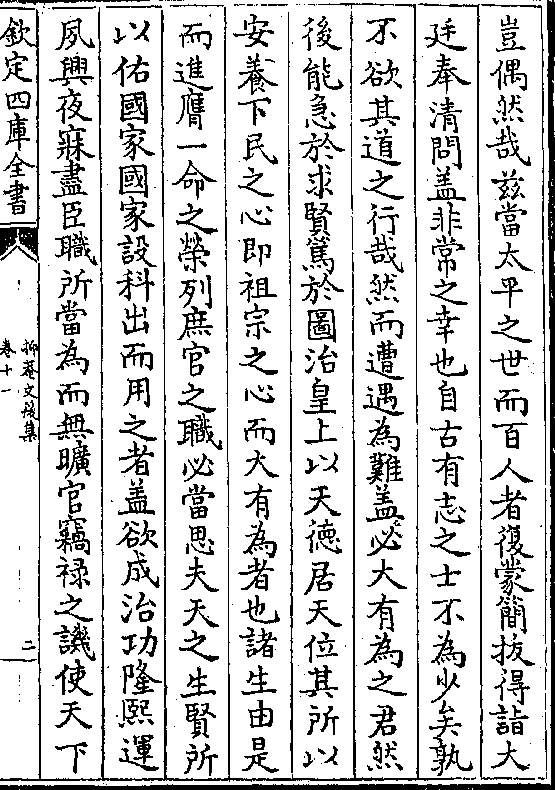 豈偶然哉兹當太平之世而百人者復蒙簡拔得詣大
廷奉清問蓋非常之幸也自古有志之士不為少矣孰
不欲其道之行哉然而遭遇為難蓋必大有為之君然
後能急於求賢篤於圖治皇上以天德居天位其所以
安養下民之心即祖宗之心而大有為者也諸生由是
而進膺一命之榮列庶官之職必當思夫天之生賢所
以佑國家國家設科出而用之者蓋欲成治功隆熙運
夙興夜寐盡臣職所當為而無曠官竊禄之譏使天下
欽定四庫全書
抑菴文後集
卷十一
二